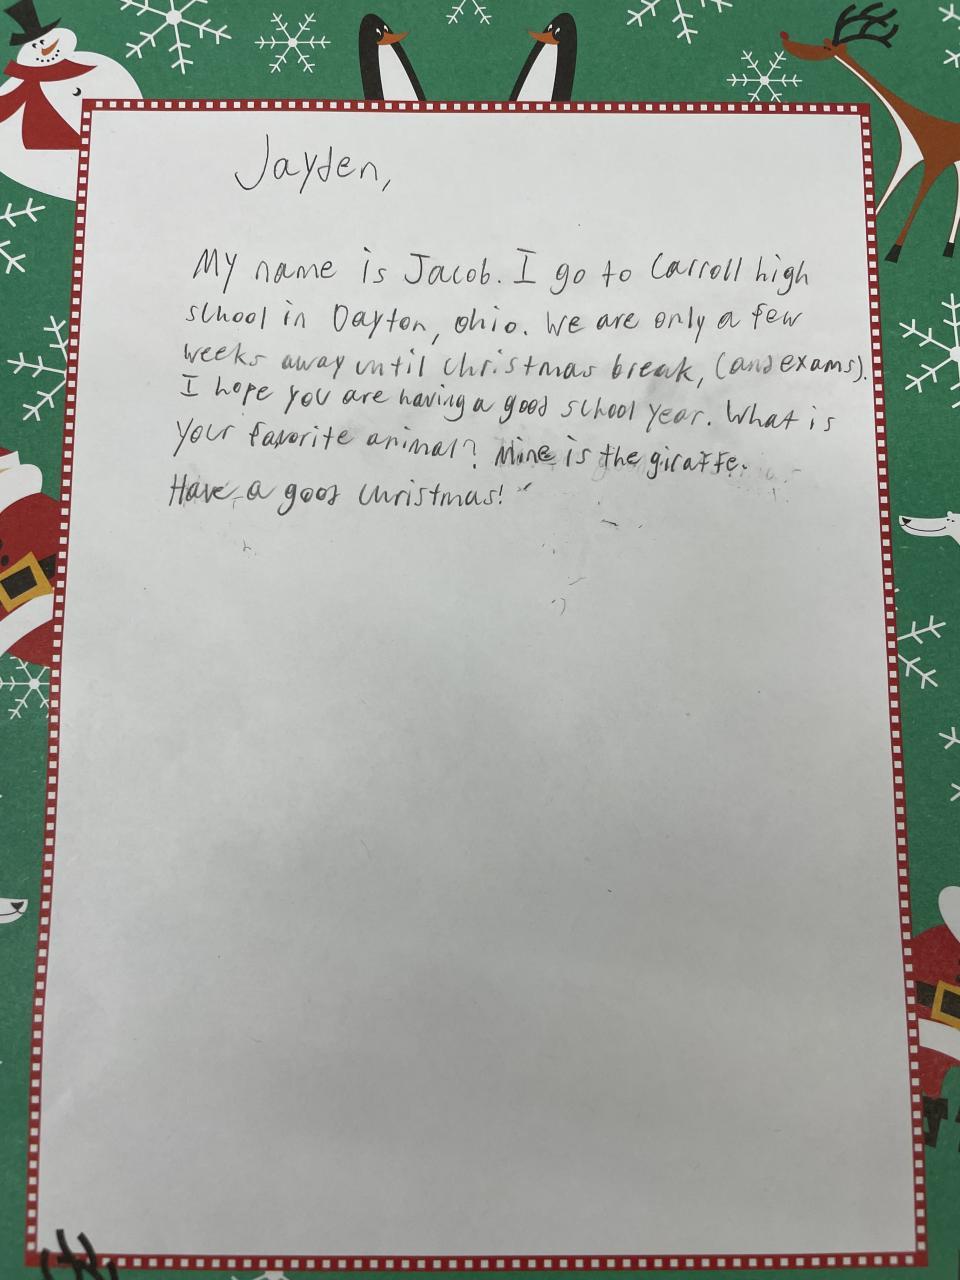 Jayden,
My name is Jacob. I go to Carroll high
school in Dayton, ohio. We are only a few
weeks away until christmas break, (and exams).
I hope you are having a good school year. What is
your favorite animal? Mine is the giraffe.
Have a good christmas!